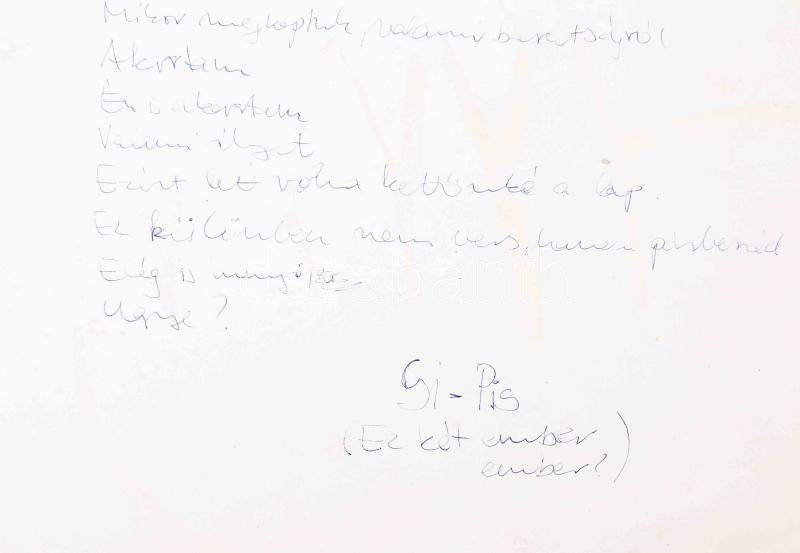 Mikor megkaptuk, valami barátságról
Akartam
Én is akartam
Valami ilyet
Ezért lett volna kettőnké a lap.
Ez különben nem vers, hanem párbeszéd
Elég is
Ugye?
Gi-Pis
(Ez két ember
ember?)